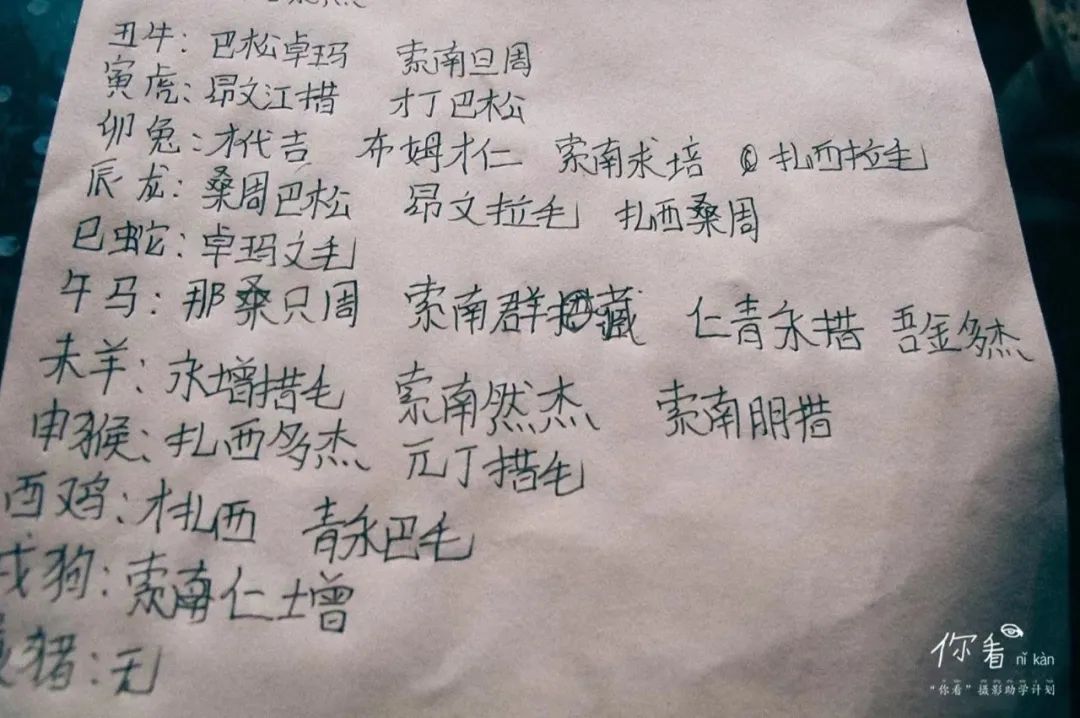 丑牛：巴松卓玛 索南旦周
寅虎：昂文江措 才丁巴松
卯兔：才代吉 布姆才仁 索南求培 扎西拉毛
辰龙：桑周巴松 昂文拉毛 扎西桑周
巳蛇：卓玛文毛
午马：那桑只周 索南群藏 仁青永措 吾金多杰
未羊：永增措毛 索南然杰 索南朋措
申猴：扎西多杰 元丁措毛
酉鸡：才扎西 青永巴毛
戌狗：索南仁增
猪：无
你看 nǐ kàn
“你看”摄影助学计划